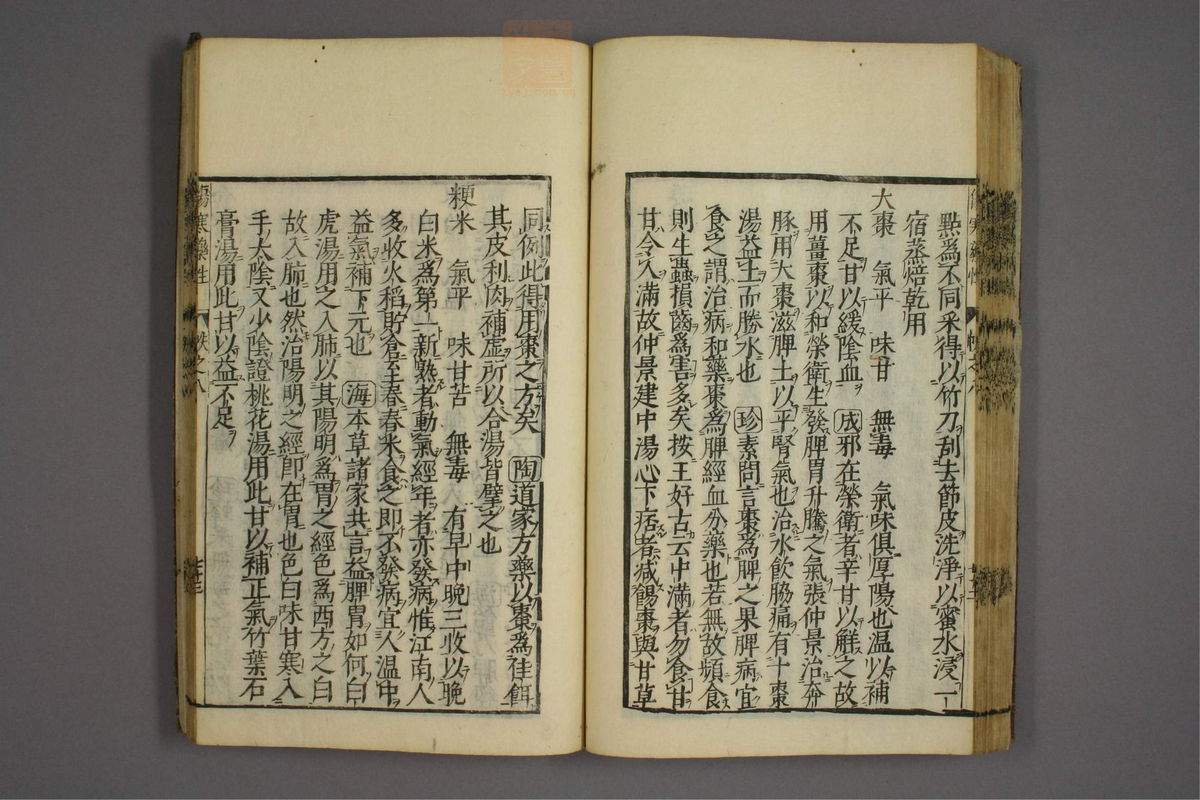 點爲不同采得以竹刀刮去節皮洗淨以蜜水浸一
宿蒸焙乾用
大棗　氣平　味甘　無毒　氣味俱厚陽也温以補
不足甘以緩陰血　成邪在榮衛者辛甘以觧之故
用薑棗以和榮衛生發脾胃升騰之氣張仲景治奔
豚用大棗滋脾土以平腎氣也治水飲脇痛有十棗
湯益土而勝水也　珍素問言棗爲脾之果脾病宜
食之謂治病和藥棗爲脾經血分藥也若無故頻食
則生蟲損齒爲害多矣按王好古云中滿者勿食甘
甘令人滿故仲景建中湯心下痞者减餳棗與甘草
同例此得用棗之方矣　陶道家方藥以棗爲佳餌
其皮利肉補虛所以合湯皆擘之也
粳米　氣平　味甘苦　無毒　有早中晚三收以晚
白米爲第一新熟者動氣經年者亦發病惟江南人
多收火稻貯倉至春舂米食之即不發病宜人温中
益氣補下元也　海本草諸家共言益脾胃如何白
虎湯用之入肺以其陽明爲胃之經色爲西方之白
故入肺也然治陽明之經即在胃也色白味甘寒入
手太陰又少陰證桃花湯用此甘以補正氣竹葉石
膏湯用此甘以益不足
傷寒藥性　帙之八